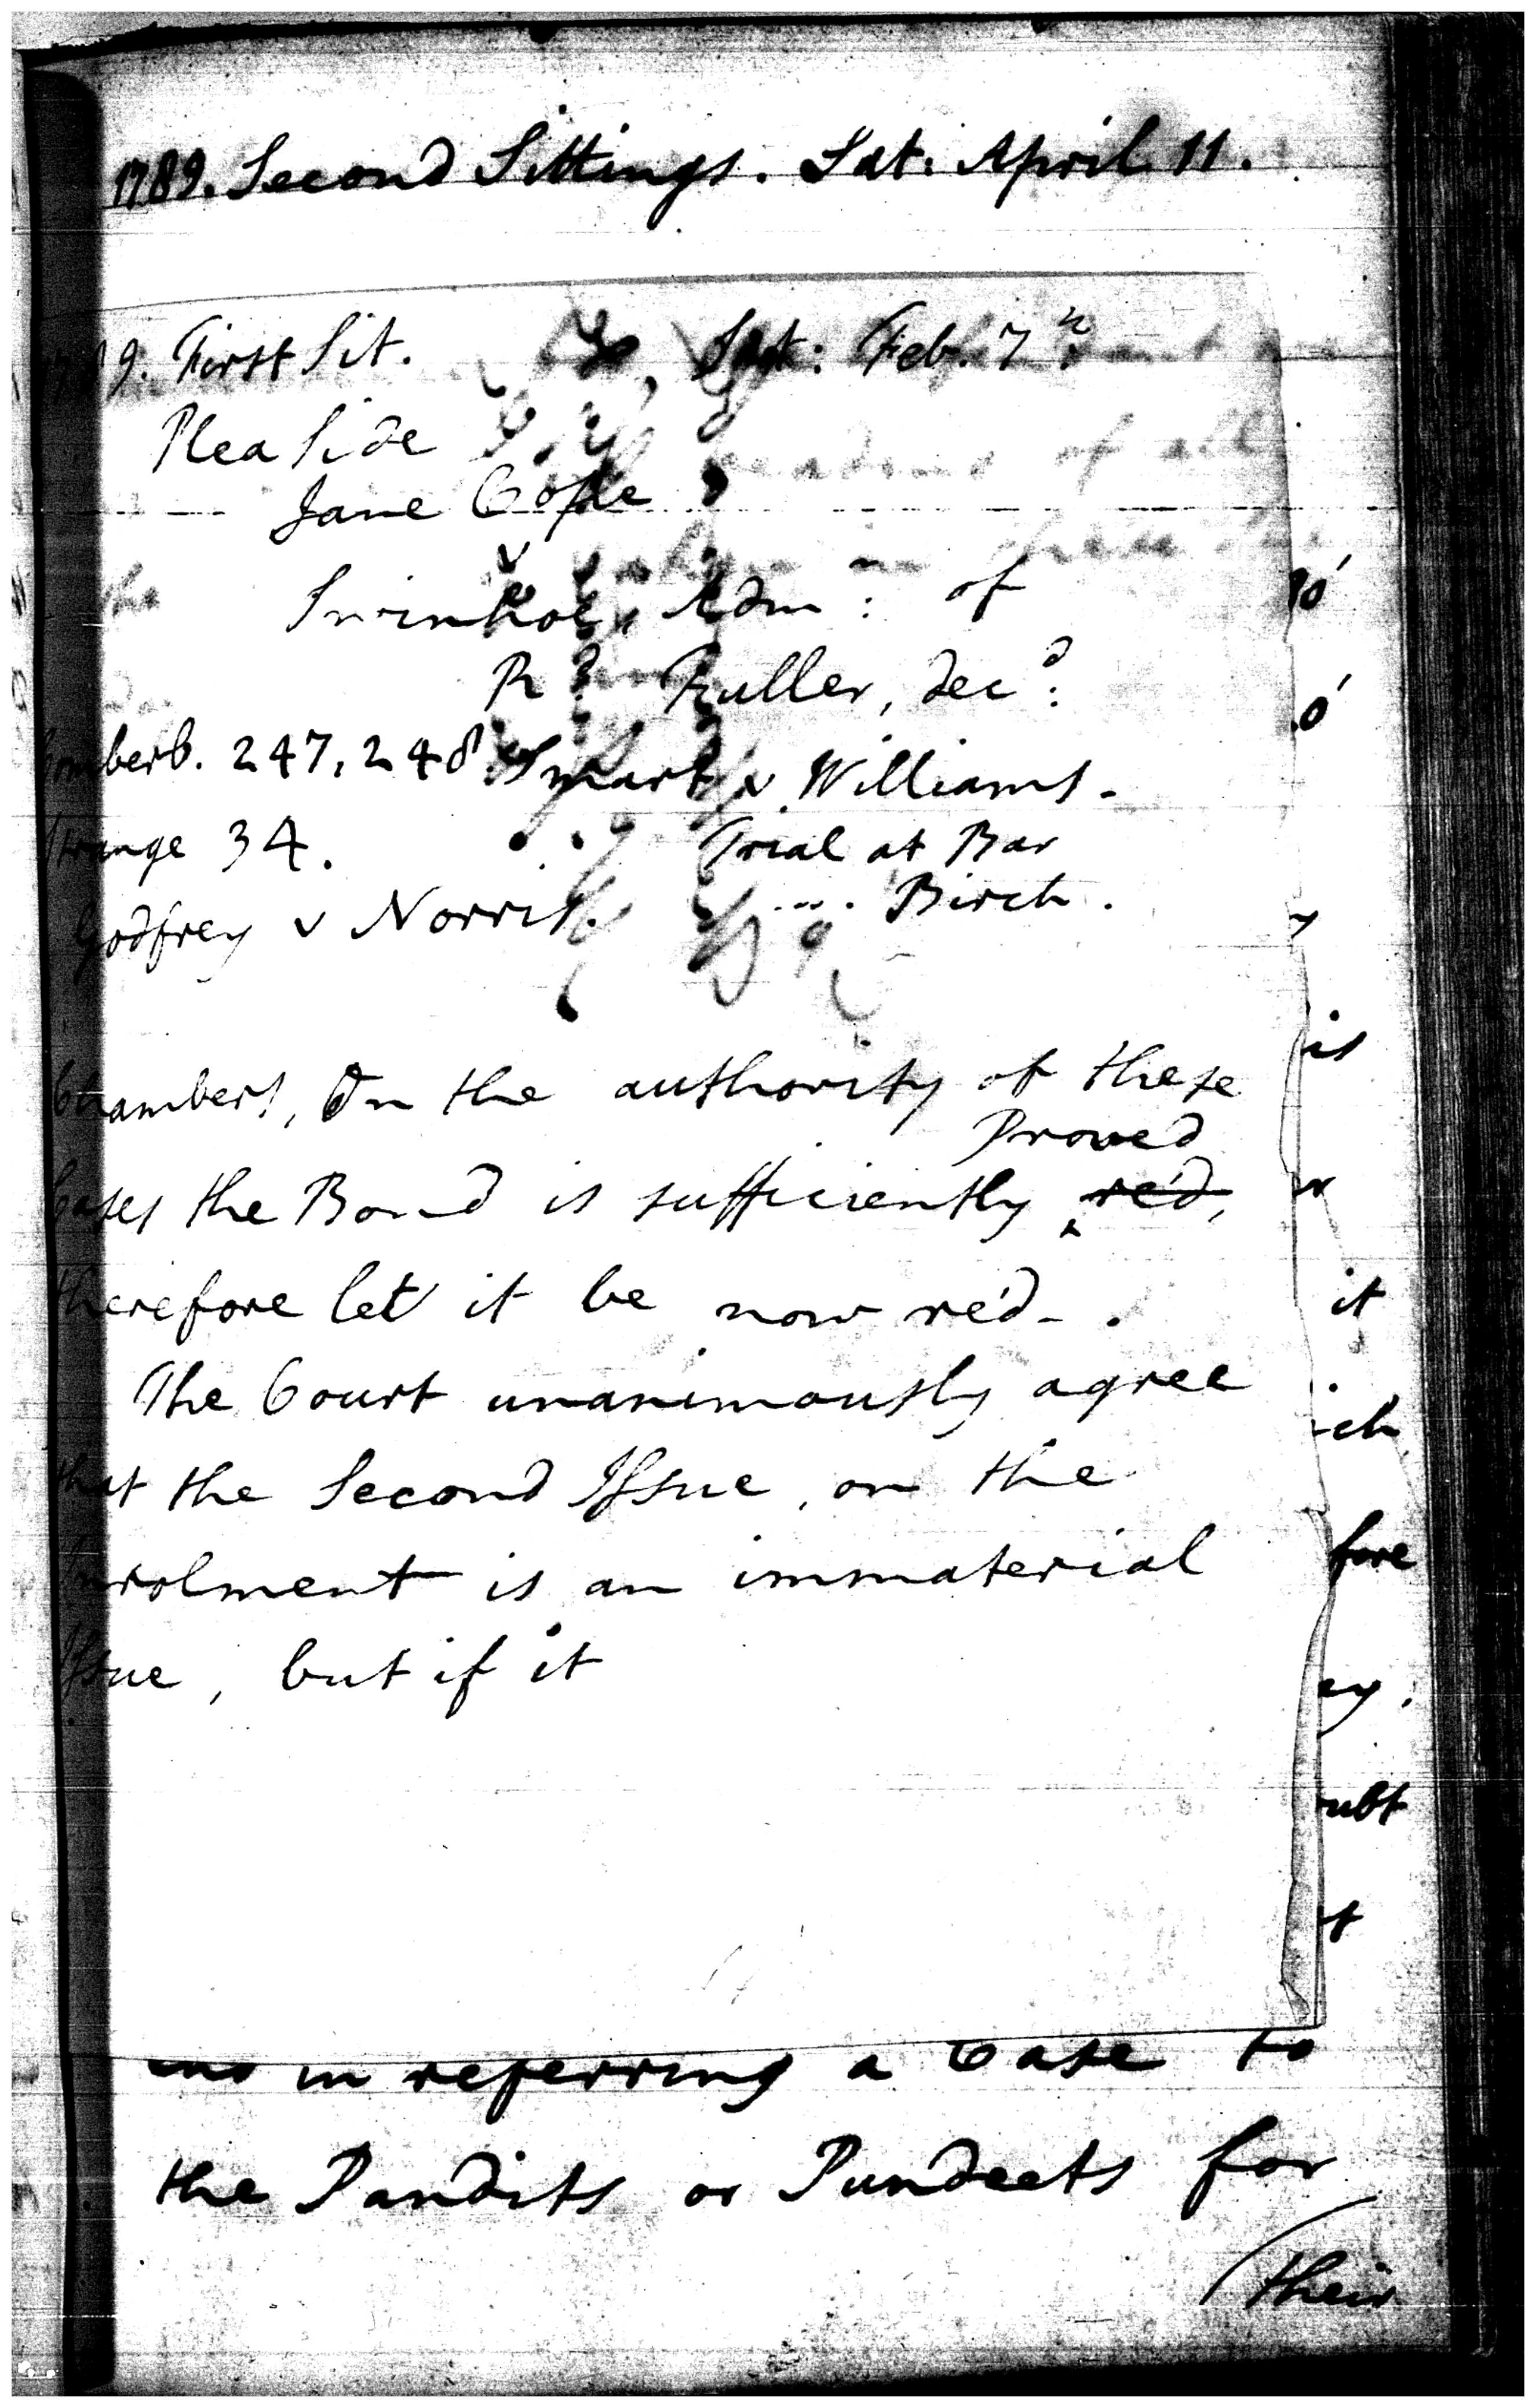 1789. Second Sittings. Sat: April. 11.
9. First Sit. Sat: Feb. 7th
Plea Side
Jane Cople
v
Swinhoe, Adm: of
Rd: Fuller, decd:
Comberb. 247, 248 Smart v Williams.
Strange 34. Trial at Bar
Godfrey v Norris. .... Birch.
Chambers, On the authority of these
Proved
Cases the Bond is sufficiently ‸ re'd,
therefore let it be now re'd - .
The Court unanimously agree
that the Second Issue, on the
Inrolment is an immaterial
Issue, but if it
10'
.0'
y
is
it
ich
fore
ey.
ubt
t
in referring a Case to
the Pandits or Pundeets for
their